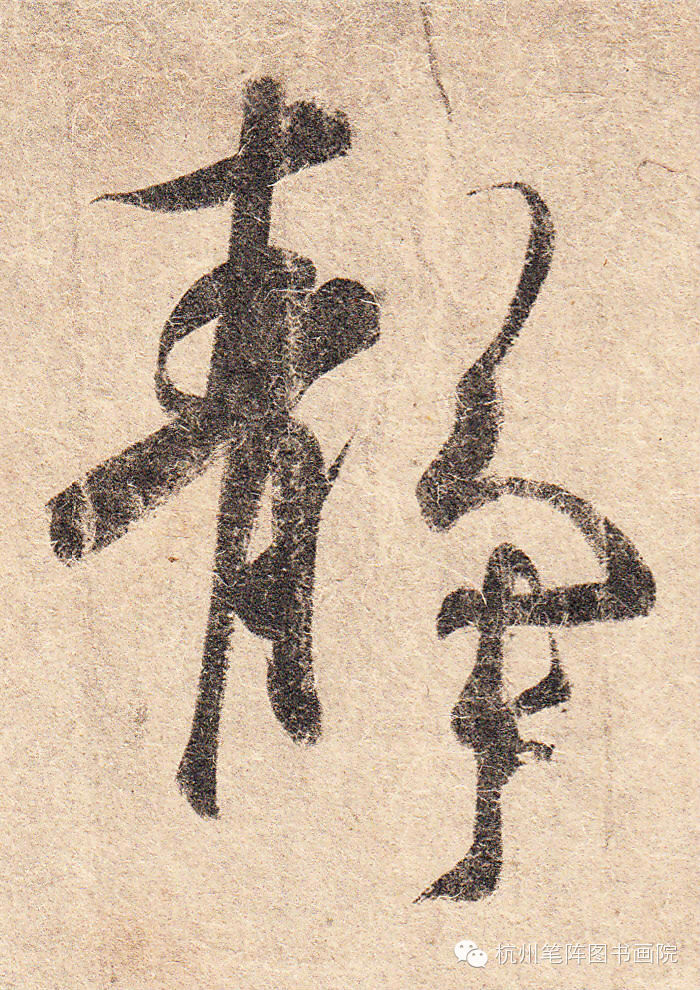 静
杭州笔阵图书画院